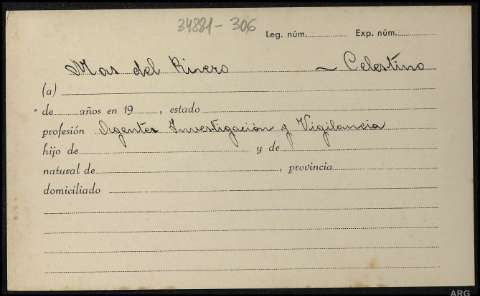 34881-306
Leg. núm. Exp. núm.
Mas del Rivero ~ Celestino
(a)
de años en 19 , estado
profesión Agente Investigación y Vigilancia
hijo de y de
natural de , provincia
domiciliado
ARG